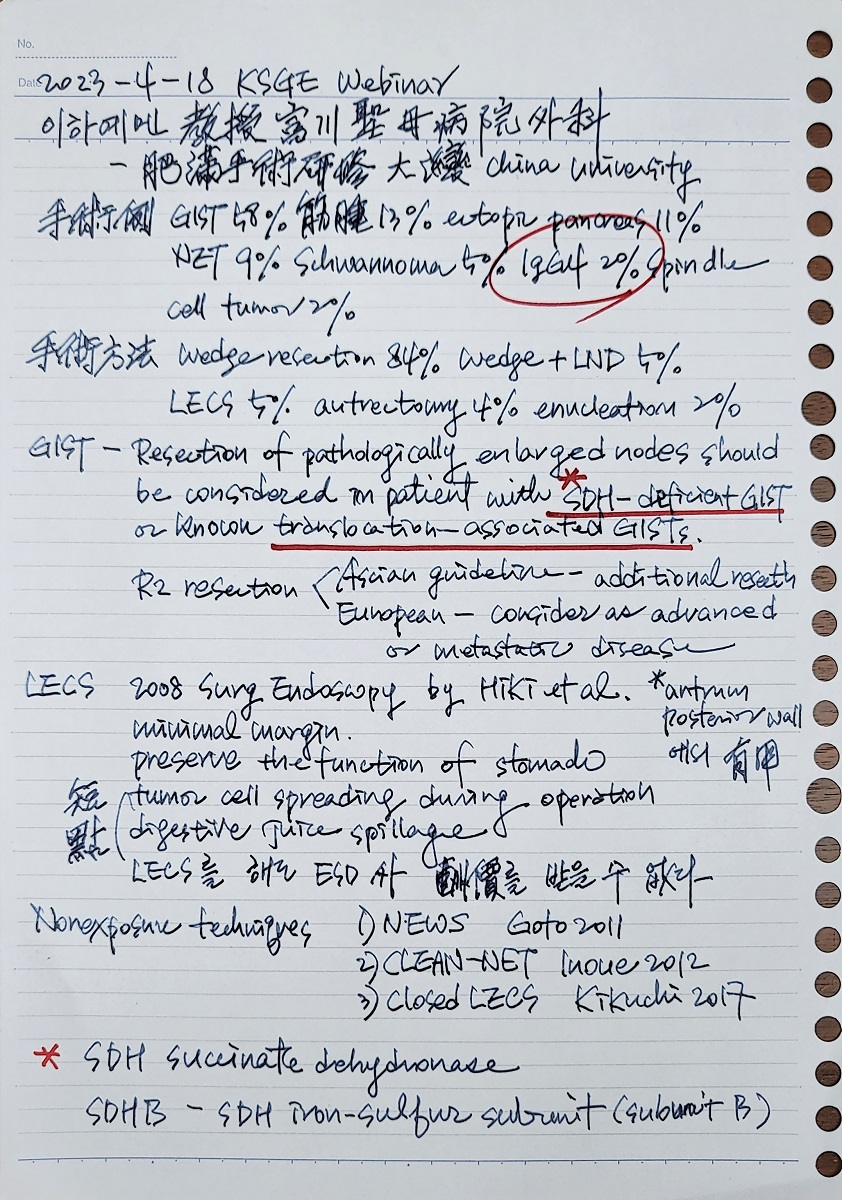 No.
Date 2023-4-18 KSGE Webinar
이하예민 教授 富川聖母病院 外科
- 肥滿手術研修 大 China University
手術示例 GIST 58% 筋腫 13% ectopic pancreas 11%
NET 9% Schwannoma 5% IgG4 2% Spindle
cell tumor 2%
手術方法 Wedge resection 84% Wedge + LND 5%
LECS 5% antrectomy 4% enucleation 2%
GIST - Resection of pathologically enlarged nodes should
be considered in patient with *SDH-deficient GIST
or known translocation-associated GISTs.
R2 resection < Ascian guideline - additional
European - consider as advanced
or metastatic disease
LECS 2008 Surg Endoscopy by Hiki et al. *antrum
minimal margin. posterior wall
preserve the function of stomach 에서 有用
短點 ( tumor cell spreading during operation
digestive juice spillague
LECS를 해도 ESD 酬價를 받을 수 없다
Nonexposure techniques 1) NEWS Goto 2011
2) CLEAN-NET Inoue 2012
3) Closed LECS Kikuchi 2017
* SDH succinate dehydronase
SDHB - SDH iron-sulfur subunit (subunit B)